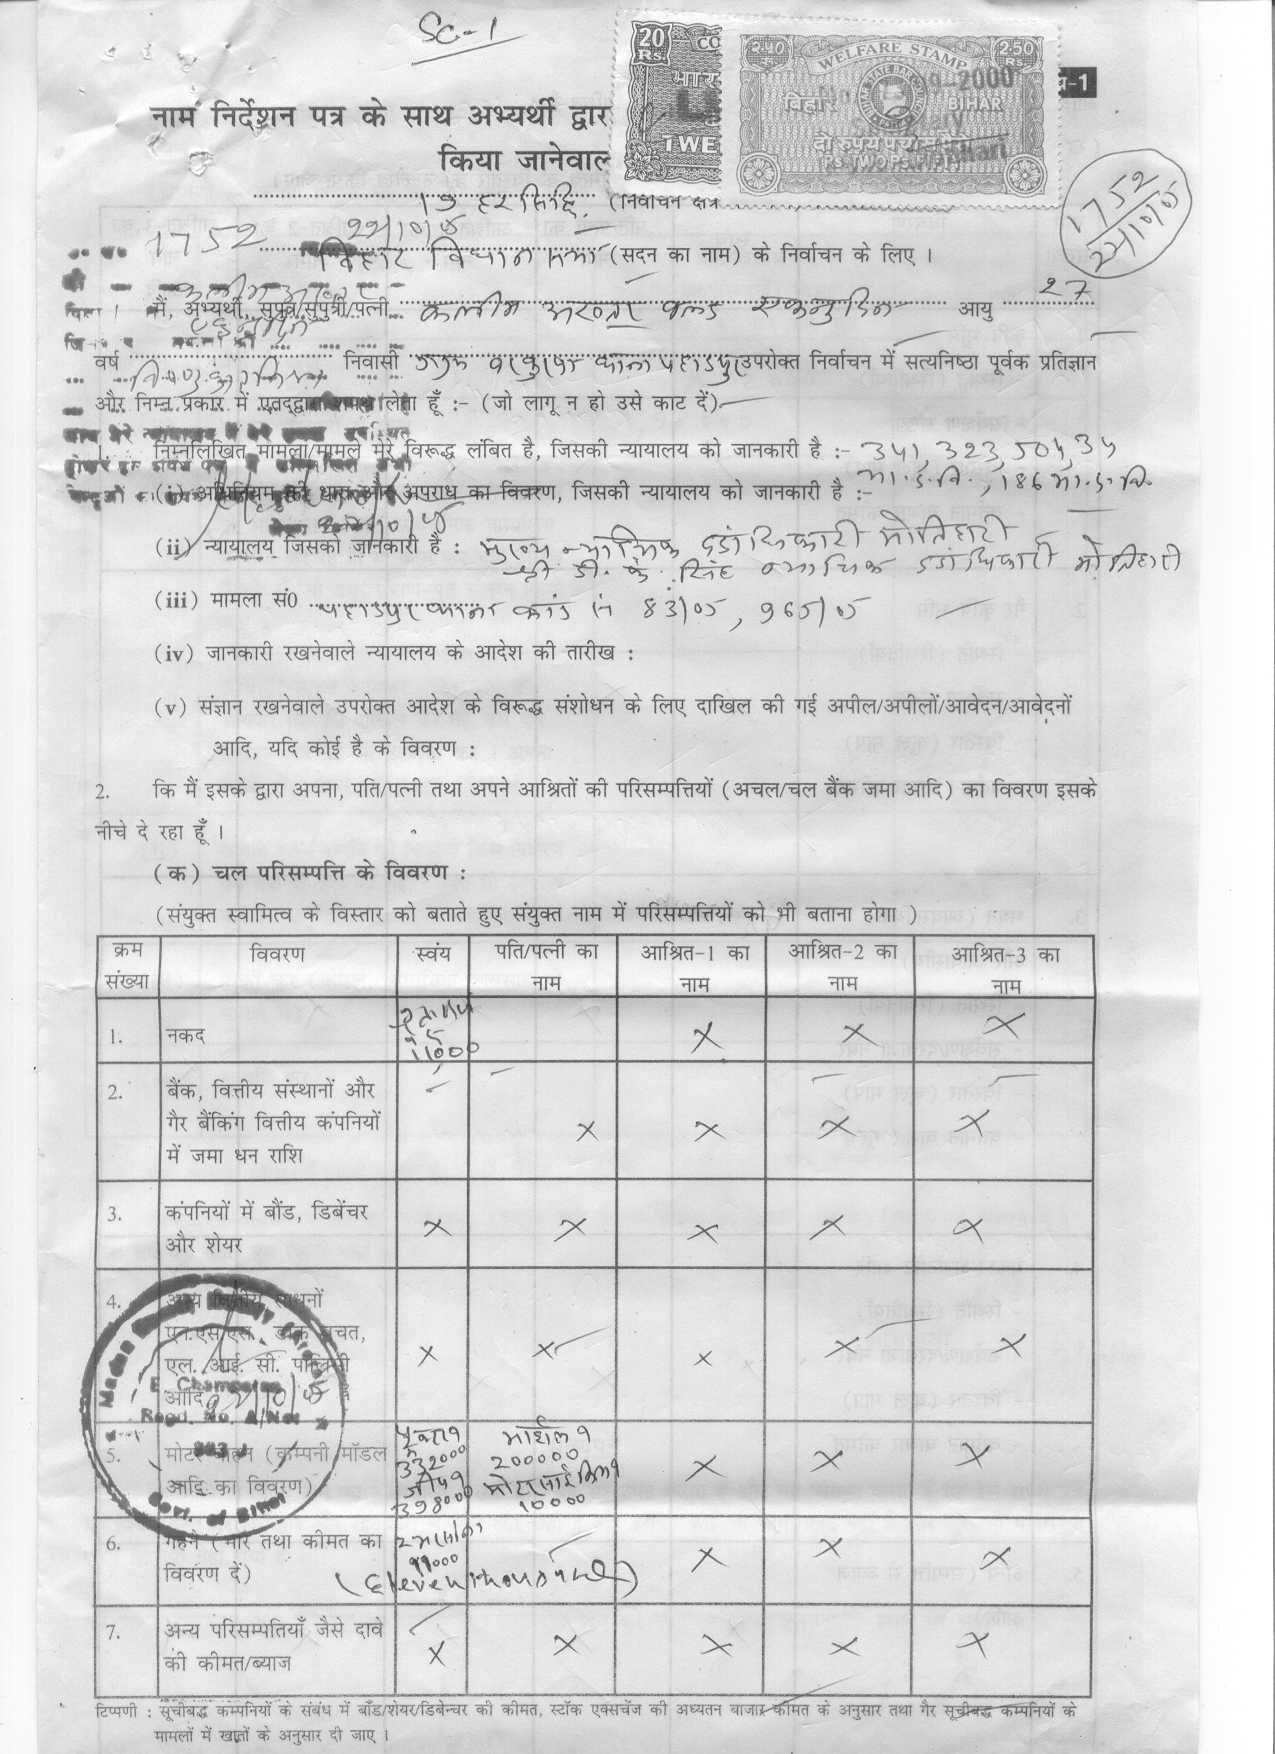 SC-1
20
Rs.
CO
भार
TWE
२.५०
WELFARE STAMP
2.50
2000
बिहार
BIHAR
दो रुपये पचास पैसे
-1
नाम निर्देशन पत्र के साथ अभ्यर्थी द्वार
किया जानेवाल
(निर्वाचन क्षेत्र
1752
22/10/05
1752
22/10/05
बिहार विधान सभा (सदन का नाम) के निर्वाचन के लिए ।
मैं, अभ्यर्थी, सुपुत्र/सुपुत्री/पत्नी आयु 27
वर्ष निवासी उपरोक्त निर्वाचन में सत्यनिष्ठा पूर्वक प्रतिज्ञान
और निम्न प्रकार में एतद्द्वारा शपथ लेता हूँ :- (जो लागू न हो उसे काट दें)
1. निम्नलिखित मामला/मामले मेरे विरूद्ध लंबित है, जिसकी न्यायालय को जानकारी है :- 341, 323, 504, 34
(i) अधिनियम की धारा और अपराध का विवरण, जिसकी न्यायालय को जानकारी है :- भा.द.वि., 186 भा.द.वि.
(ii) न्यायालय जिसको जानकारी है : मुख्य न्यायिक दंडाधिकारी मोतिहारी
श्री डी. के. सिंह न्यायिक दंडाधिकारी मोतिहारी
(iii) मामला सं0 पहाडपुर थाना कांड सं 83/05, 965/05
(iv) जानकारी रखनेवाले न्यायालय के आदेश की तारीख :
(v) संज्ञान रखनेवाले उपरोक्त आदेश के विरूद्ध संशोधन के लिए दाखिल की गई अपील/अपीलों/आवेदन/आवेदनों
आदि, यदि कोई है के विवरण :
2. कि मैं इसके द्वारा अपना, पति/पत्नी तथा अपने आश्रितों की परिसम्पत्तियों (अचल/चल बैंक जमा आदि) का विवरण इसके
नीचे दे रहा हूँ ।
(क) चल परिसम्पत्ति के विवरण :
(संयुक्त स्वामित्व के विस्तार को बताते हुए संयुक्त नाम में परिसम्पत्तियों को भी बताना होगा )
क्रम विवरण स्वंय पति/पत्नी का आश्रित-1 का आश्रित-2 का आश्रित-3 का
संख्या नाम नाम नाम नाम
1. नकद 11000 × × ×
2. बैंक, वित्तीय संस्थानों और
गैर बैंकिंग वित्तीय कंपनियों × × × ×
में जमा धन राशि
3. कंपनियों में बौंड, डिबेंचर × × × × ×
और शेयर
4. अन्य वित्तीय साधनों
एन.एस.एस., डाक बचत,
एल. आई. सी. पॉलिसी × × × × ×
आदि
E. Champaran
Regd. No.
Govt. of Bihar
5. मोटर वाहन (कम्पनी/मॉडल
आदि का विवरण)
332000
जीप १
398000
मार्शल १
200000
मोटरसाईकिल १
10000
× × ×
6. गहने (भार तथा कीमत का
विवरण दें)
११०००
(Eleven thousand)
× × ×
7. अन्य परिसम्पतियाँ जैसे दावे
की कीमत/ब्याज × × × × ×
टिप्पणी : सूचीबद्ध कम्पनियों के संबंध में बाँड/शेयर/डिबेन्चर की कीमत, स्टॉक एक्सचेंज की अध्यतन बाजार कीमत के अनुसार तथा गैर सूचीबद्ध कम्पनियों के
मामलों में खातों के अनुसार दी जाए ।